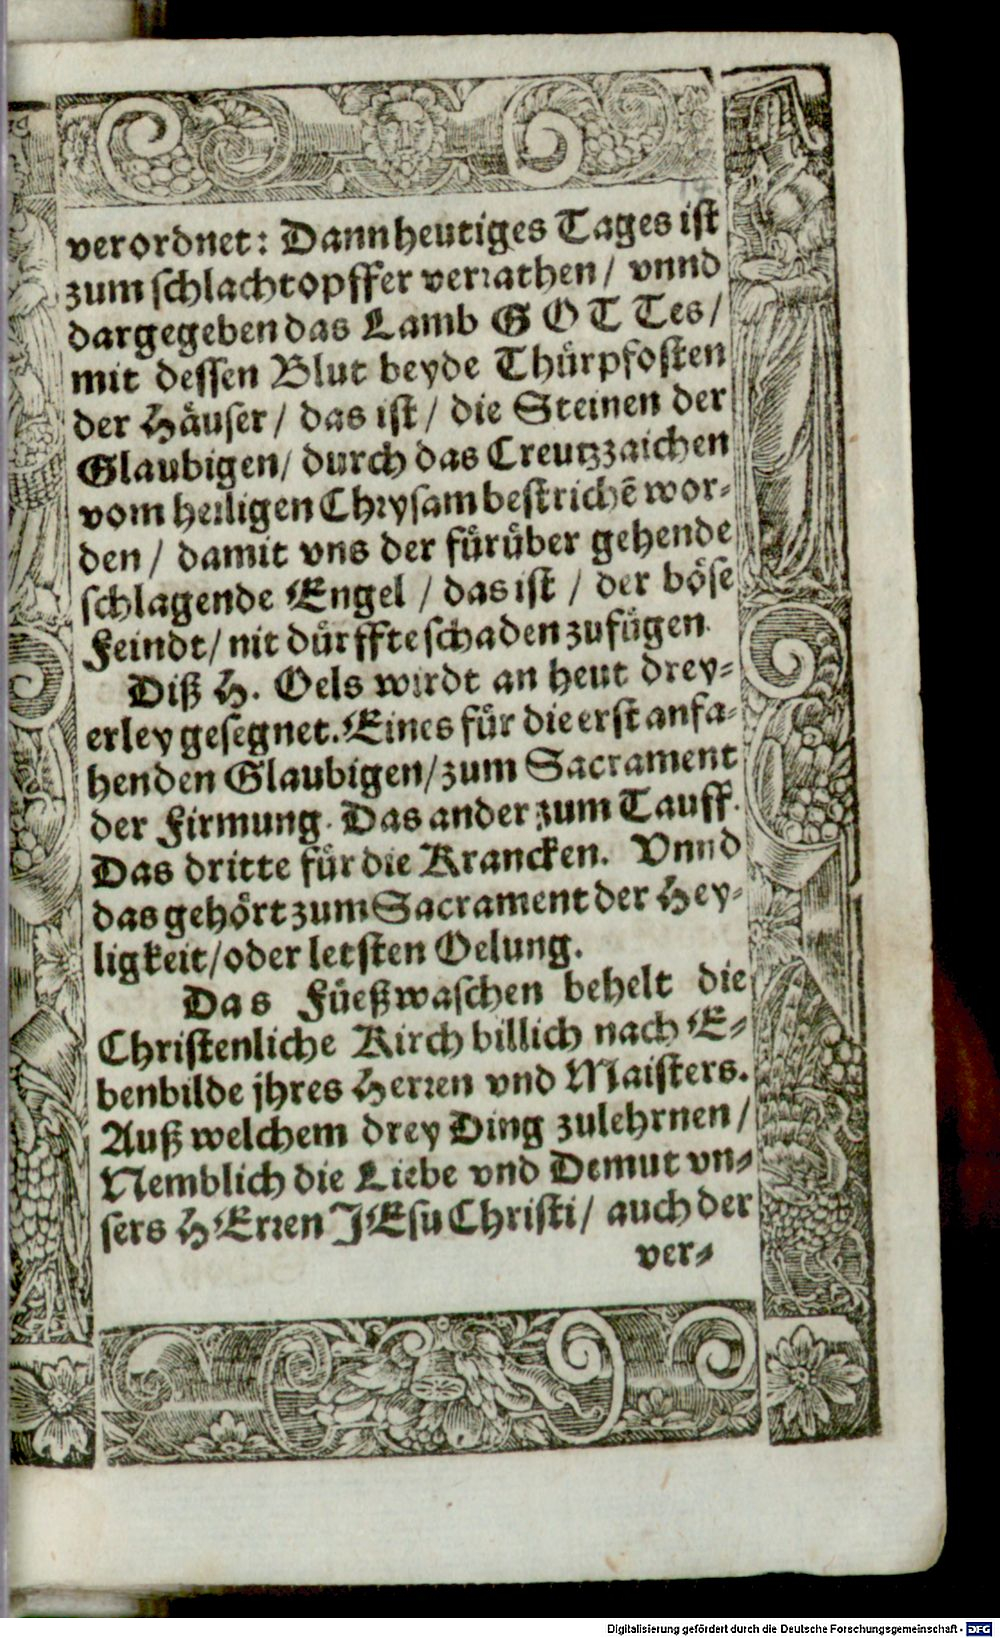 verordnet: Dann heutiges Tages ist
zum schlachtopffer verrathen / vnnd
dargegeben das Lamb GOTTes /
mit dessen Blut beyde Thürpfosten
der Häuser / das ist / die Steinen der
Glaubigen / durch das Creutzzaichen
vom heiligen Chrysam bestrichẽ wor-
den / damit vns der fürüber gehende
schlagende Engel / das ist / der böse
Feindt / nit dürffte schaden zufügen.
Diß H. Oels wirdt an heut drey-
erley gesegnet. Eines für die erst anfa-
henden Glaubigen / zum Sacrament
der Firmung. Das ander zum Tauff.
Das dritte für die Krancken. Vnnd
das gehört zum Sacrament der Hey-
ligkeit / oder letsten Oelung.
Das Füeßwaschen behelt die
Christenliche Kirch billich nach E-
benbilde jhres Herren vnd Maisters.
Auß welchem drey Ding zulehrnen /
Nemblich die Liebe vnd Demut vn-
sers HErren JEsu Christi / auch der
ver-
Digitalisierung gefördert durch die Deutsche Forschungsgemeinschaft - DFG